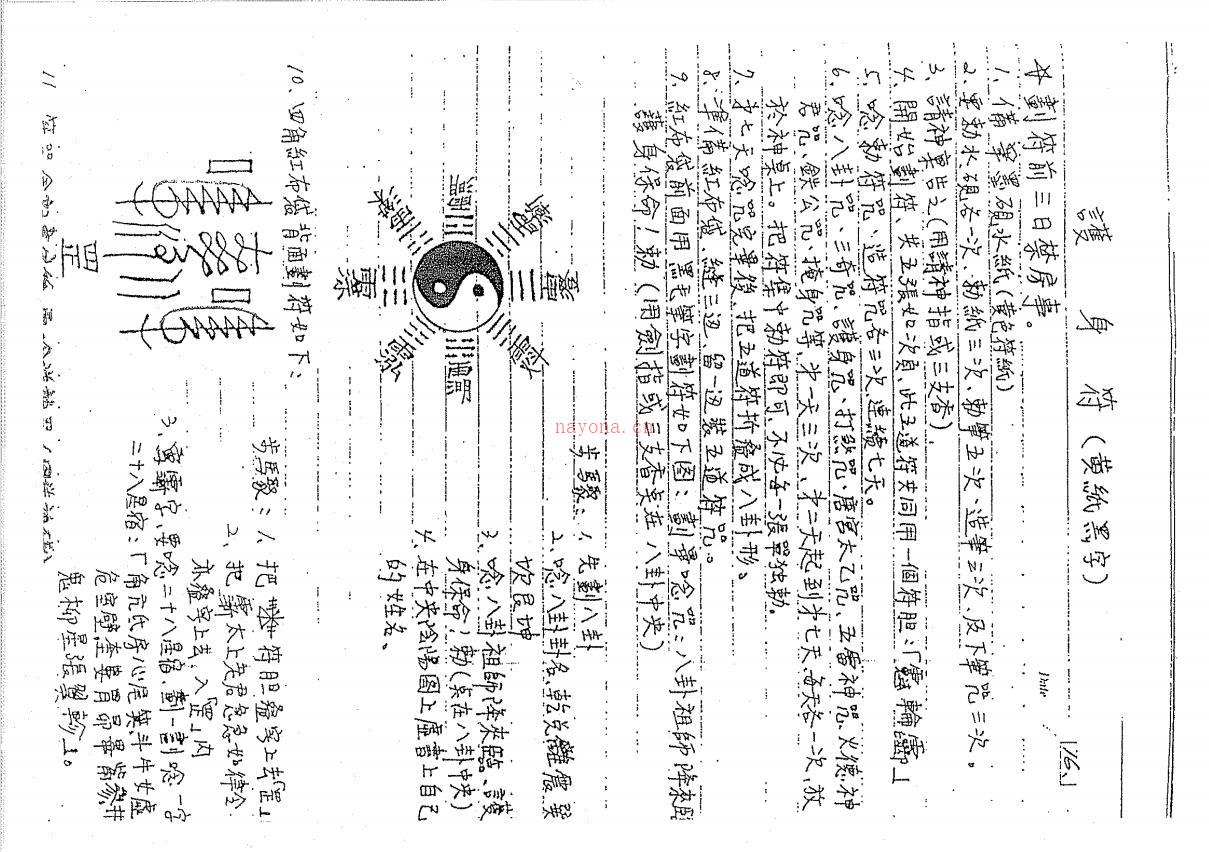 16.
Date
護身符(黃紙黑字)
※劃符前三日禁房事。
1、備筆墨硯水紙(黃色符紙)
2、要勅水硯各一次、勅紙三次、勅筆五次、造筆三次、及下筆咒三次。
3、請神稟告之(用請神指或三支香)
4、開始劃符、共五張如次頁、此五道符共同用一個符胆:「
5、唸勅符咒、造符咒各三次連續七天。
6、唸八卦咒、三奇咒、護身咒、打煞咒、唐宮太乙咒、五雷神咒、火德神
君咒、鉄公咒、掩身咒等、第一天三次、第二天起到第七天每天各一次、放
於神桌上。把符集中勅符即可、不必每一張單独勅。
7、第七天唸咒完畢後、把五道符折叠成八卦形。
8、準備紅布袋、縫三边、留一边裝五道符咒。
9、紅布袋前面用黑毛筆字劃符如下图:劃畢唸咒:八卦祖師降來臨
護身保命!勅(用劍指或三支香点在八卦中央)
步驟:1、先劃八卦
2、唸八卦卦名、乾兌離震巽
坎艮坤
3、唸八卦祖師降來臨、護
身保命!勅(点在八卦中央)
4、在中央陰陽图上虛書上自己
的姓名。
10、四角紅布袋背面劃符如下:
罡
步驟:1、把
符胆叠字上去「罡」
2、把
太上老君急急如律令
亦叠字上去、入「罡」內
3、寫
字、要唸二十八星宿、劃一劃唸一字
二十八星宿:「角亢氐房心尾箕斗牛女虛
危室壁奎婁胃昴畢觜參井
鬼柳星張翼軫」。
11
nayona.cn